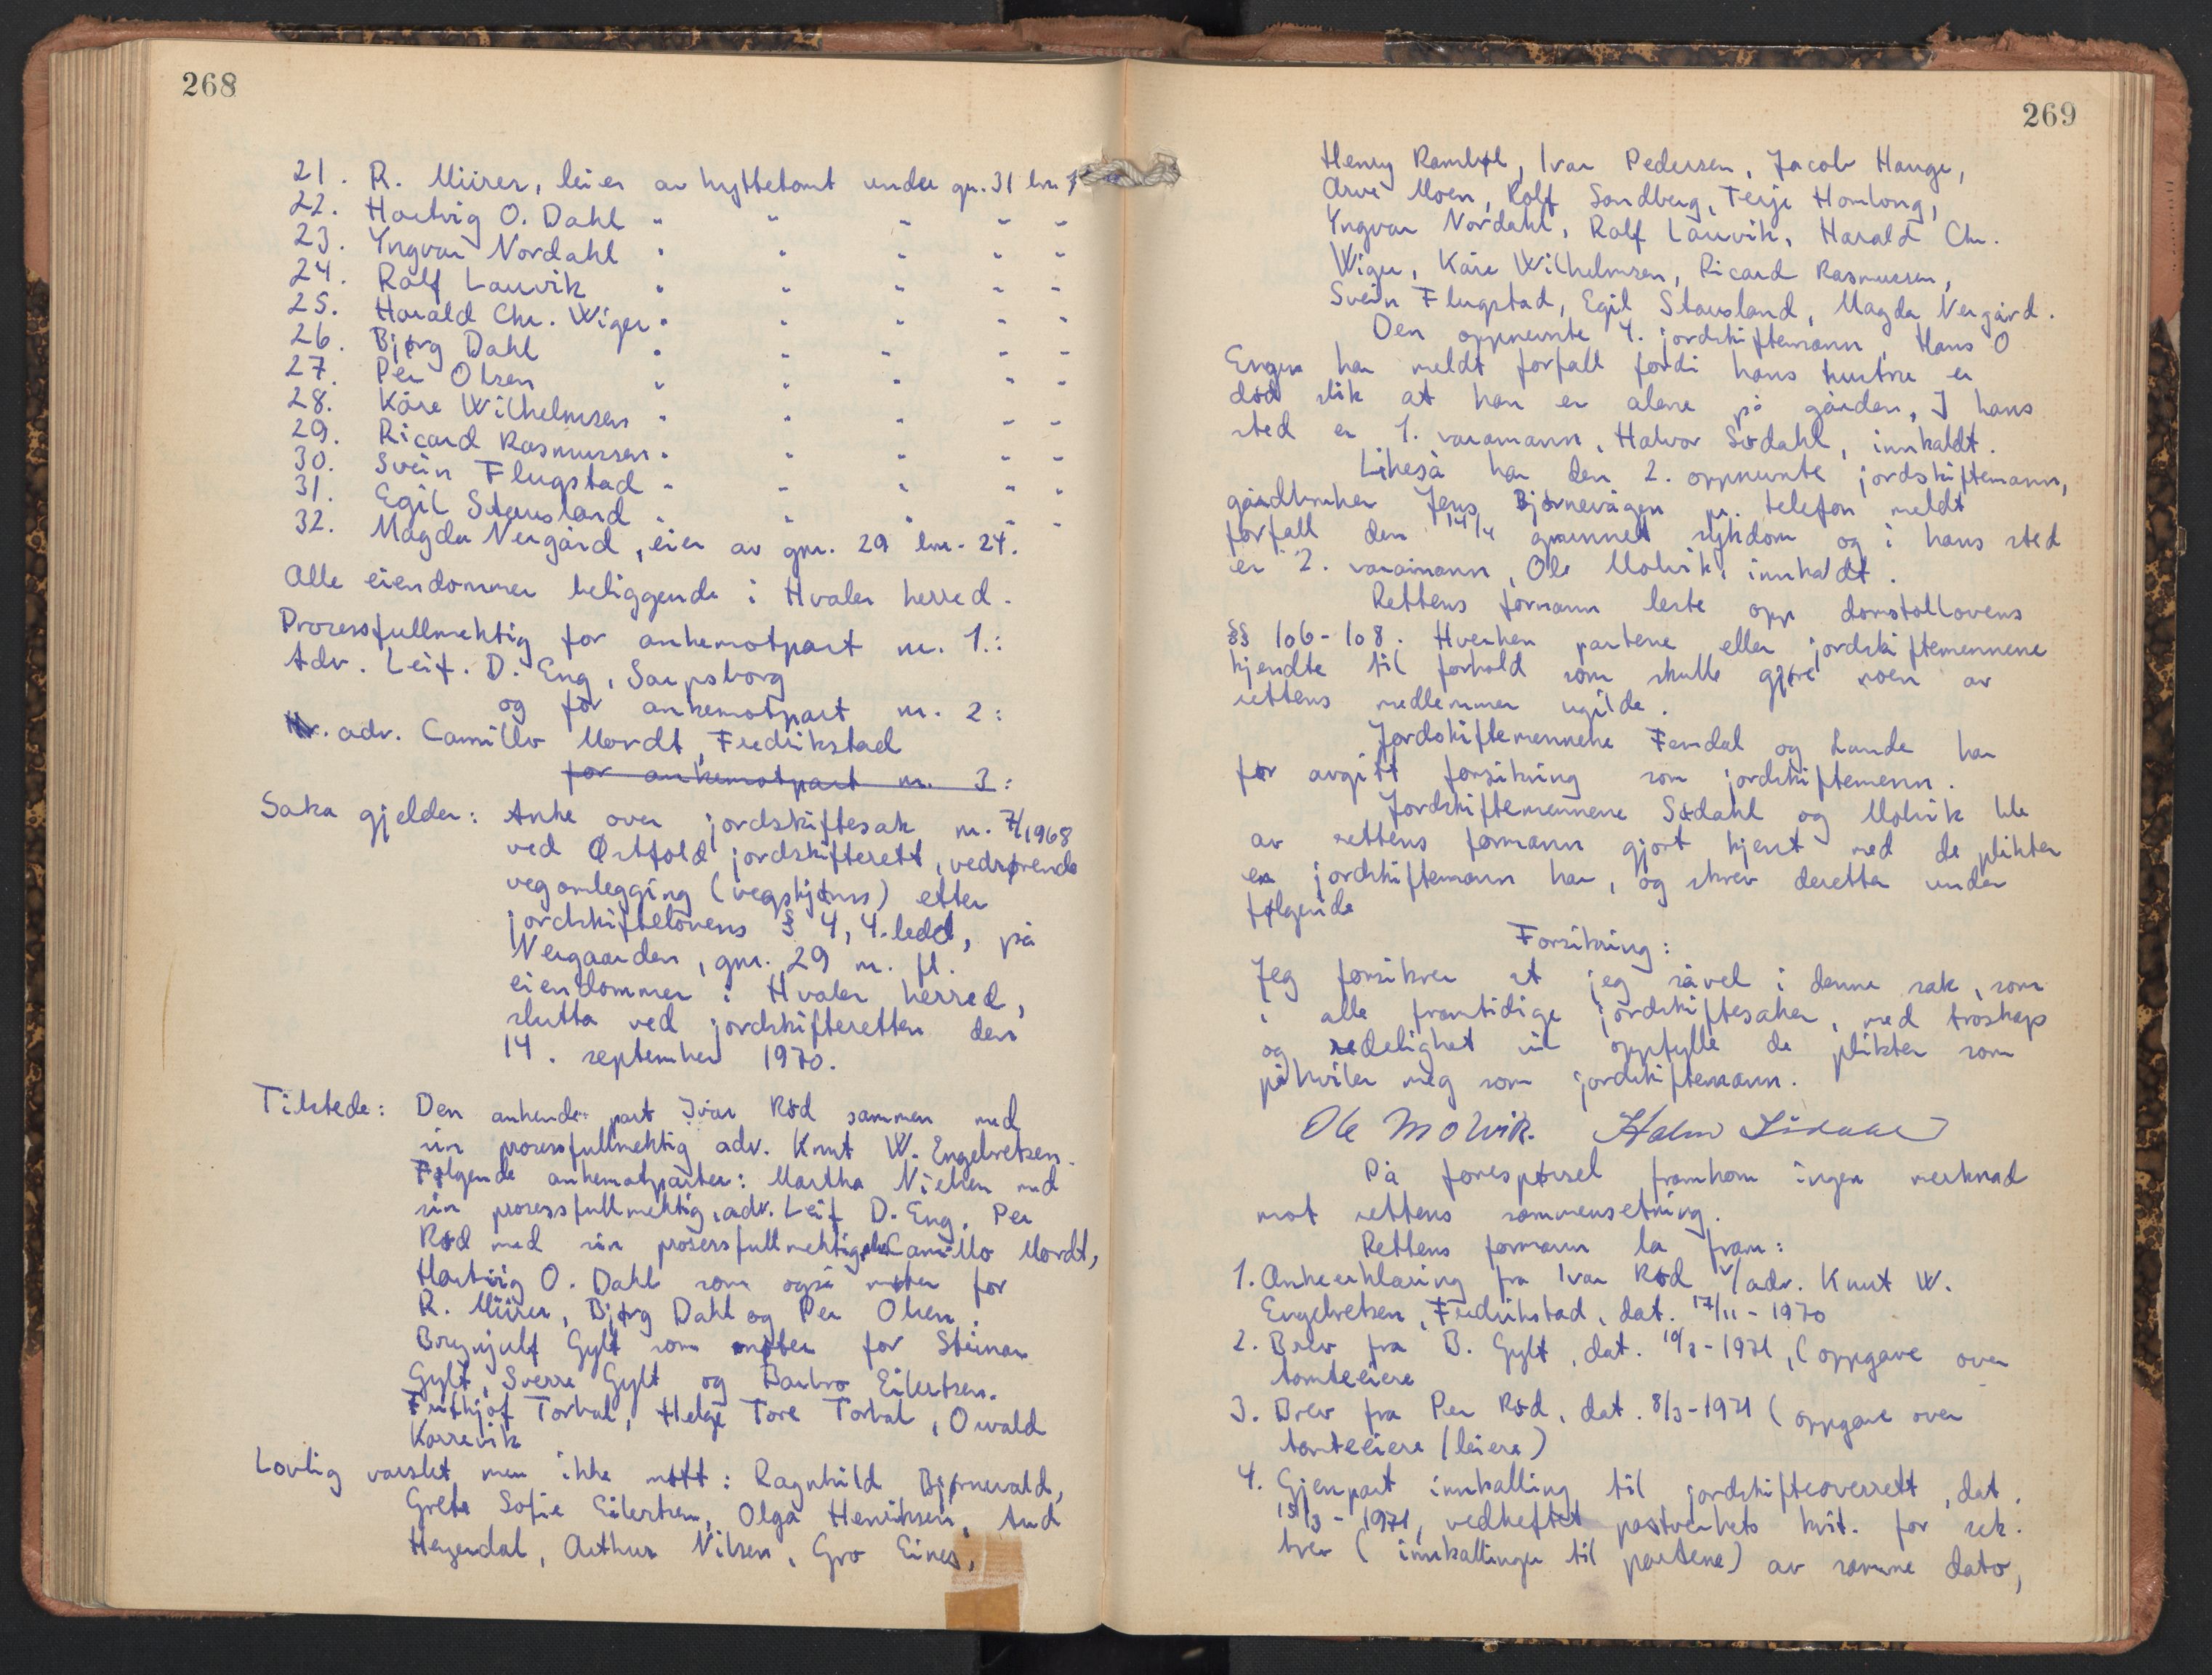 268
21. R. Müirer, leier av hyttetomt under gn. 31 bn. 7
22. Hartvig O. Dahl " " " " "
23. Yngvar Nordahl " " " " "
24. Rolf Lauvik " " " " "
25. Harald Chr. Wiger " " " " "
26. Bjørg Dahl " " " " "
27. Per Olsen " " " " "
28. Kåre Wilhelmsen " " " " "
29. Ricard Rasmussen " " " " "
30. Svein Flugstad " " " " "
31. Egil Stausland " " " " "
32. Magda Nergård, eier av gnr. 29 bnr. 24.
Alle eiendommer beliggende i Hvaler herred.
Prosessfullmektig for ankemotpart nr. 1.:
Adv. Leif. D. Eng, Sarpsborg
og for ankemotpart nr. 2:
adv. Camillo Mordt, Fredrikstad
for ankemotpart nr. 3:
Saka gjelder: Anke over jordskiftesak nr. 7/1968
ved Østfold jordskifterett, vedrørende
vegomlegging (vegskjønn) etter
jordskiftelovens § 4, 4. ledd, på
Nergaarden, gnr. 29 m. fl.
eiendommer i Hvaler herred,
slutta ved jordskifteretten den
14. september 1970.
Tilstede: Den ankende part Ivar Rød sammen med
sin prosessfullmektig adv. Knut W. Engebretsen.
Følgende ankemotparter: Martha Nielsen med
sin prosessfullmektig, adv. Leif D. Eng, Per
Rød med sin prosessfullmektig, adv. Camillo Mordt,
Hartvig O. Dahl som også møter for
R. Müirer, Bjørg Dahl og Per Olsen.
Brynjulf Gylt som møter for Steinar
Gylt, Sverre Gylt og Barbro Eilertsen.
Frithjof Torbal, Helge Tore Torbal, Osvald
Korrevik
Lovlig varslet men ikke møtt: Ragnhild Bjørnevald,
Grete Sofie Eilertsen, Olga Henriksen, Aud
Heyerdal, Arthur Nilsen, Gro Eines,
269
Henry Rambøl, Ivar Pedersen, Jacob Hauge,
Arve Moen, Rolf Sandberg, Terje Homlong,
Yngvar Nordahl, Rolf Lauvik, Harald Chr.
Wiger, Kåre Wilhelmsen, Ricard Rasmussen,
Svein Flugstad, Egil Stausland, Magda Nergård.
Den oppnevnte 1. jordskiftemann, Hans O
Engen har meldt forfall fordi hans hustru er
død slik at han er alene på gården, I hans
sted er 1. varamann, Halvor Sødahl, innkaldt.
Likeså har den 2. oppnevnte jordskiftemann,
gårdbruker Jens Bjørnevågen pr. telefon meldt
forfall den 14/4 grunnet sykdom og i hans sted
er 2. varamann, Ole Molvik, innkaldt.
Rettens formann leste opp domstollovens
§§ 106-108. Hverken partene eller jordskiftemennene
kjendte til forhold som skulle gjøre noen av
rettens medlemmer ugilde.
Jordskiftemennene Femdal og Lunde har
før avgitt forsikring som jordskiftemenn.
Jordskiftemennene Sødahl og Molvik ble
av rettens formann gjort kjent med de plikter
en jordskiftemann har, og skrev deretter under
følgende
Forsikring:
Jeg forsikrer at jeg såvel i denne sak, som
i alle framtidige jordskiftesaker, med troskap
og redelighet vil oppfylle de plikter som
påhviler meg som jordskiftemann.
Ole Molvik. Halvor Sødahl
På forespørsel framkom ingen merknad
mot rettens sammensetning.
Rettens formann la fram:
1. Ankeerklæring fra Ivar Rød v/adv. Knut W.
Engebretsen, Fredrikstad, dat. 17/11 - 1970
2. Brev fra B. Gylt, dat. 10/3 - 1971, (oppgave over
tomteeiere
3. Brev fra Per Rød, dat. 8/3 - 1971 (oppgave over
tomteeiere (leiere)
4. Gjenpart innkalling til jordskifteoverrett, dat.
15/3 - 1971, vedheftet postverkets kvit. for rek.
brev (innkallinger til partene) av samme dato,